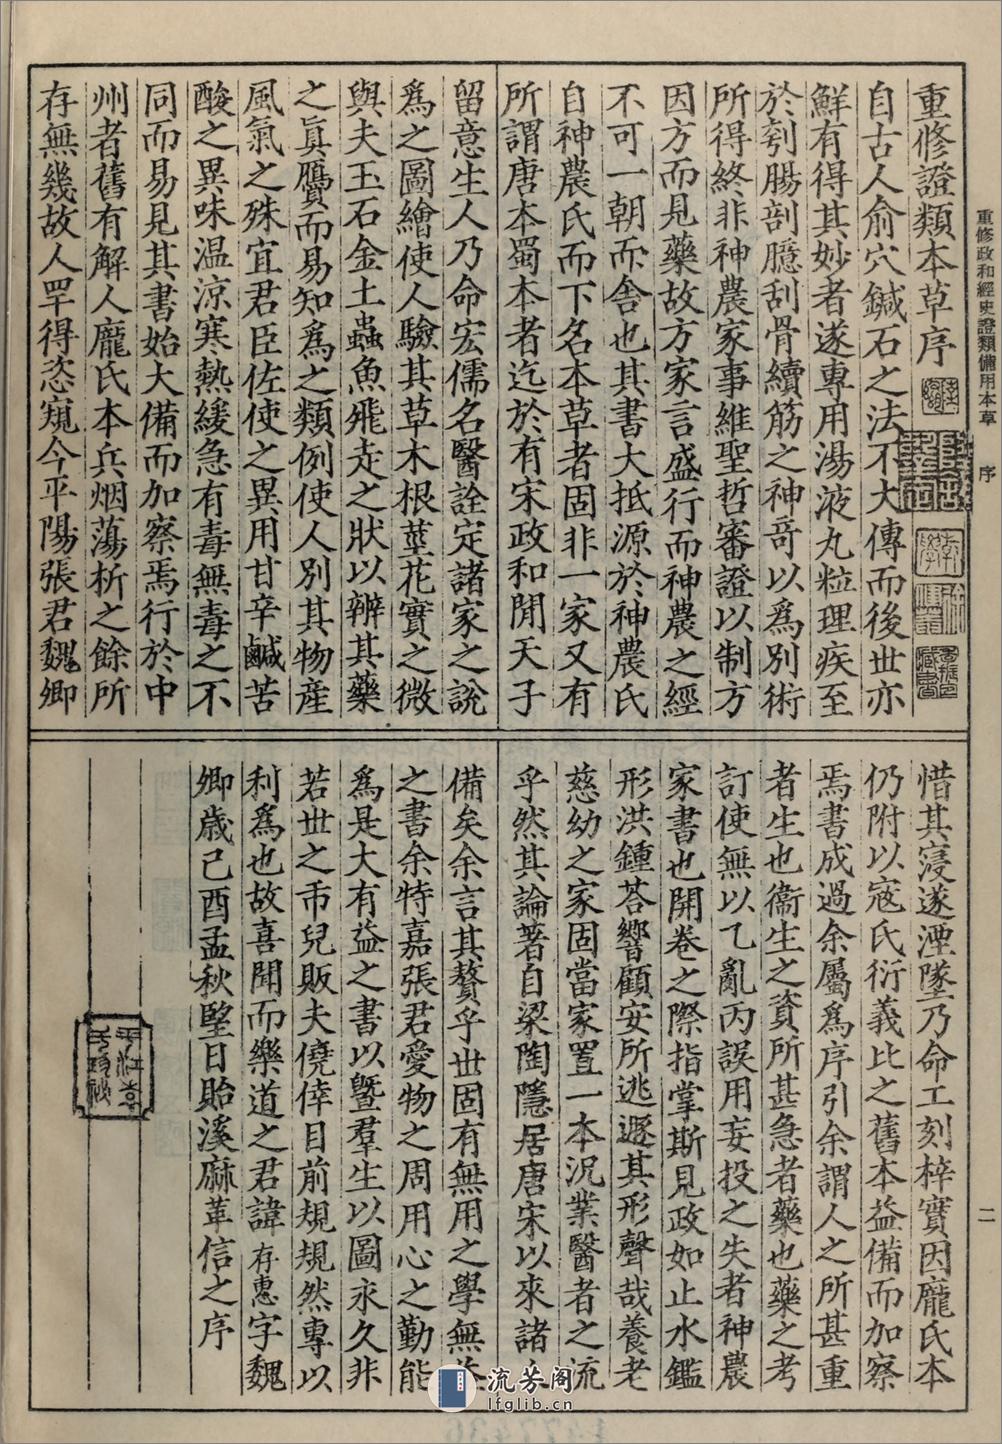 重修政和經史證類備用本草　序
二
重修證類本草序
自古人俞穴鍼石之法不大傳而後世亦
鮮有得其妙者遂專用湯液丸粒理疾至
於刳腸剖臆刮骨續筋之神竒以爲别術
所得終非神農家事維聖哲審證以制方
因方而見藥故方家言盛行而神農之經
不可一朝而舍也其書大抵源於神農氏
自神農氏而下名本草者固非一家又有
所謂唐本蜀本者迄於有宋政和間天子
留意生人乃命宏儒名醫詮定諸家之說
爲之圖繪使人驗其草木根莖花實之微
與夫玉石金土蟲魚飛走之狀以辨其藥
之眞贗而易知爲之類例使人別其物産
風氣之殊宜君臣佐使之異用甘辛鹹苦
酸之異味温涼寒熱緩急有毒無毒之不
同而易見其書始大備而加察焉行於中
州者舊有解人龐氏本兵烟蕩析之餘所
存無幾故人罕得恣窺今平陽張君魏卿
惜其寖遂湮墜乃命工刻梓實因龐氏本
仍附以宼氏衍義比之舊本益備而加察
焉書成過余屬爲序引余謂人之所甚重
者生也衞生之資所甚急者藥也藥之考
訂使無以乙亂丙誤用妄投之失者神農
家書也開卷之際指掌斯見政如止水鑑
形洪鍾荅響顧安所逃遯其形聲哉養老
慈幼之家固當家置一本況業醫者之流
乎然其論著自梁陶隱居唐宋以來諸
備矣余言其贅乎世固有無用之學無益
之書余特嘉張君愛物之周用心之勤能
爲是大有益之書以曁羣生以圖永久非
若世之市兒販夫僥倖目前規規然專以
利爲也故喜聞而樂道之君諱存惠字魏
卿歳己酉孟秋朢日貽溪麻革信之序
流芳阁
lfglib.cn